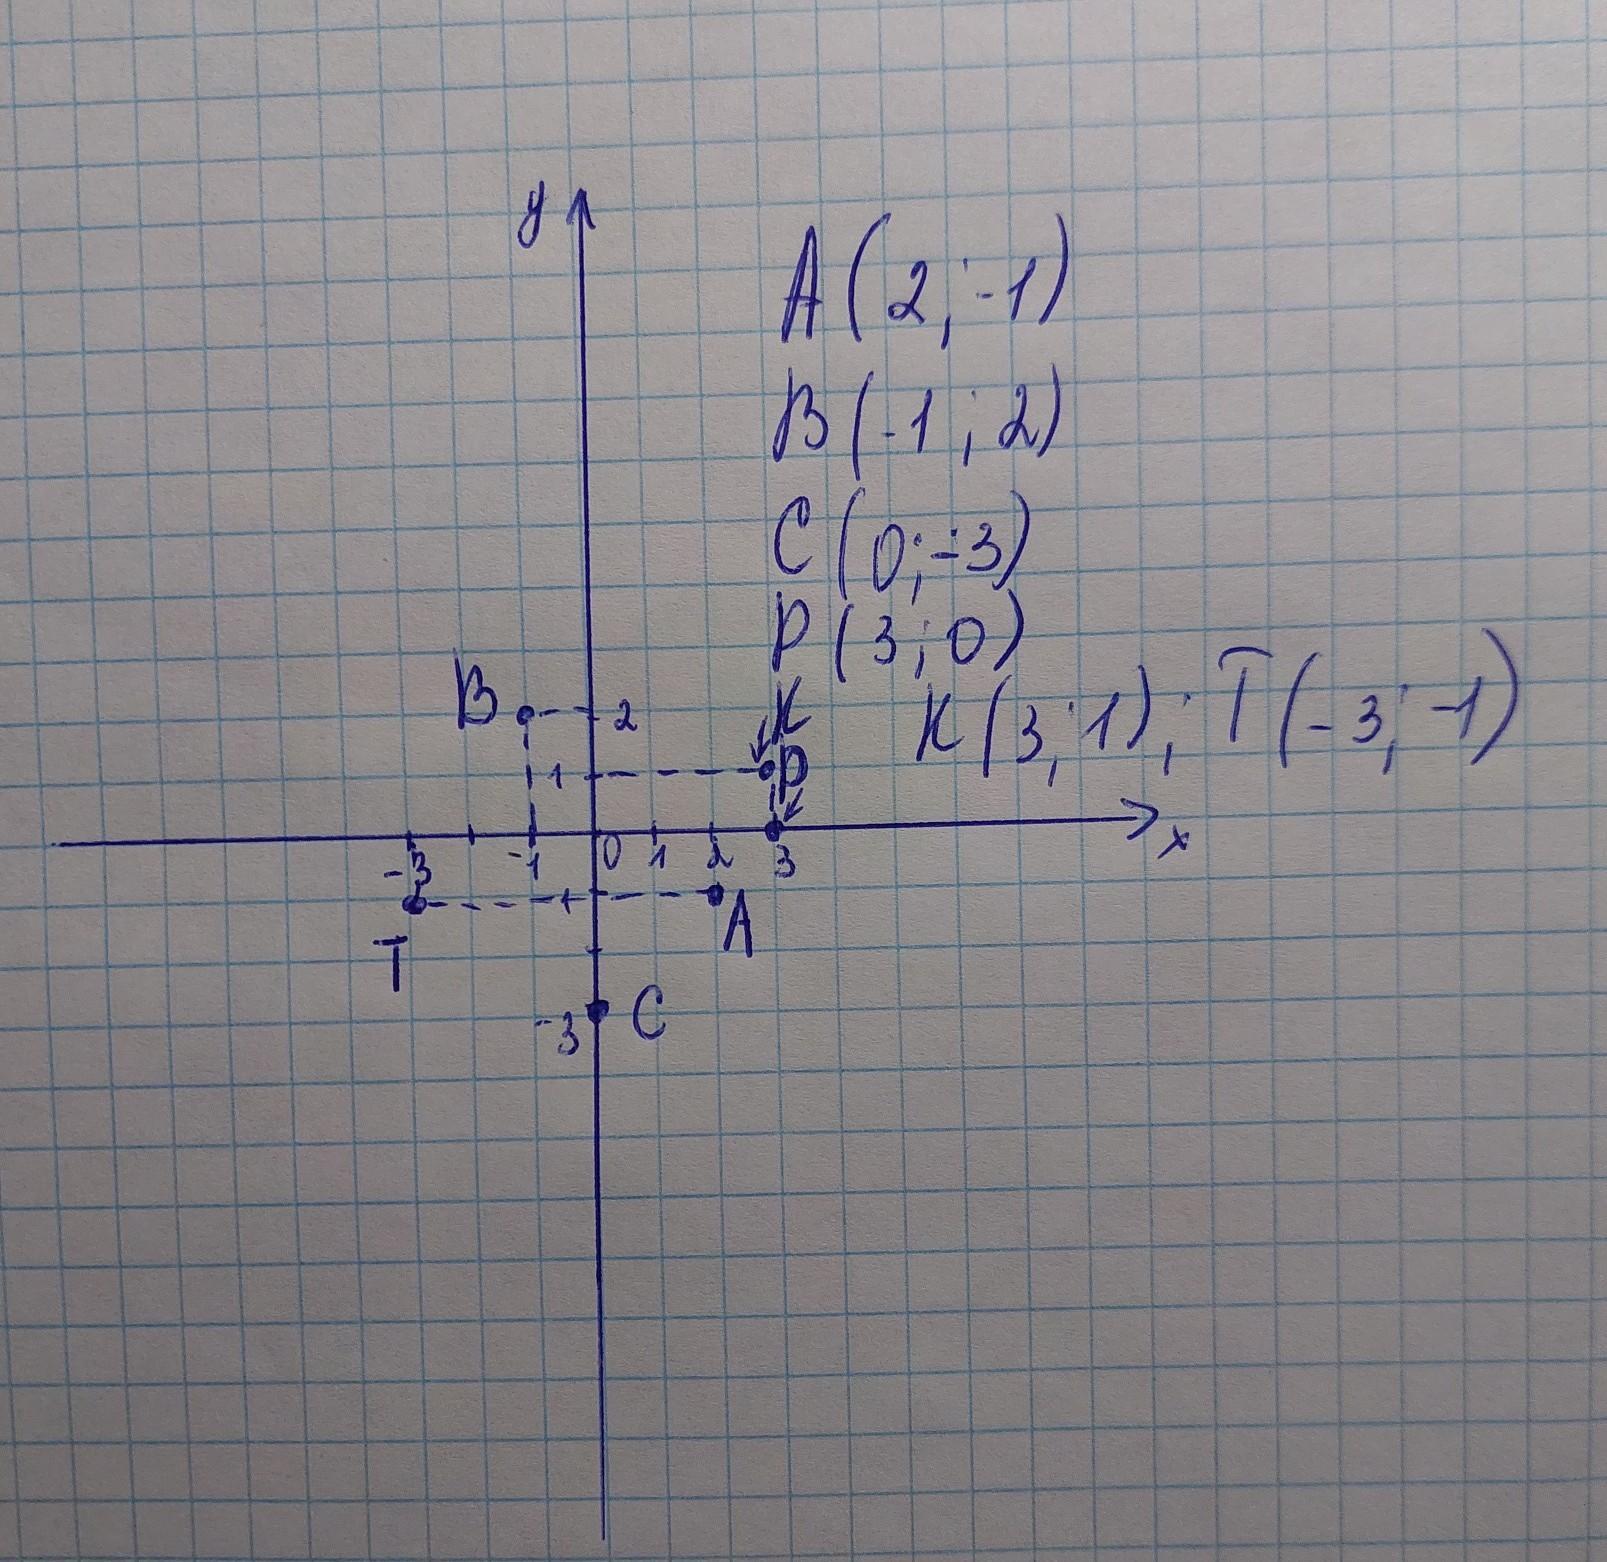 y
A(2;-1)
B(-1;2)
C(0;-3)
P(3;0)
K K(3;1); T(-3;-1)
B 2
1 P
-3 -1 0 1 2 3 x
-1
T A
-3 C